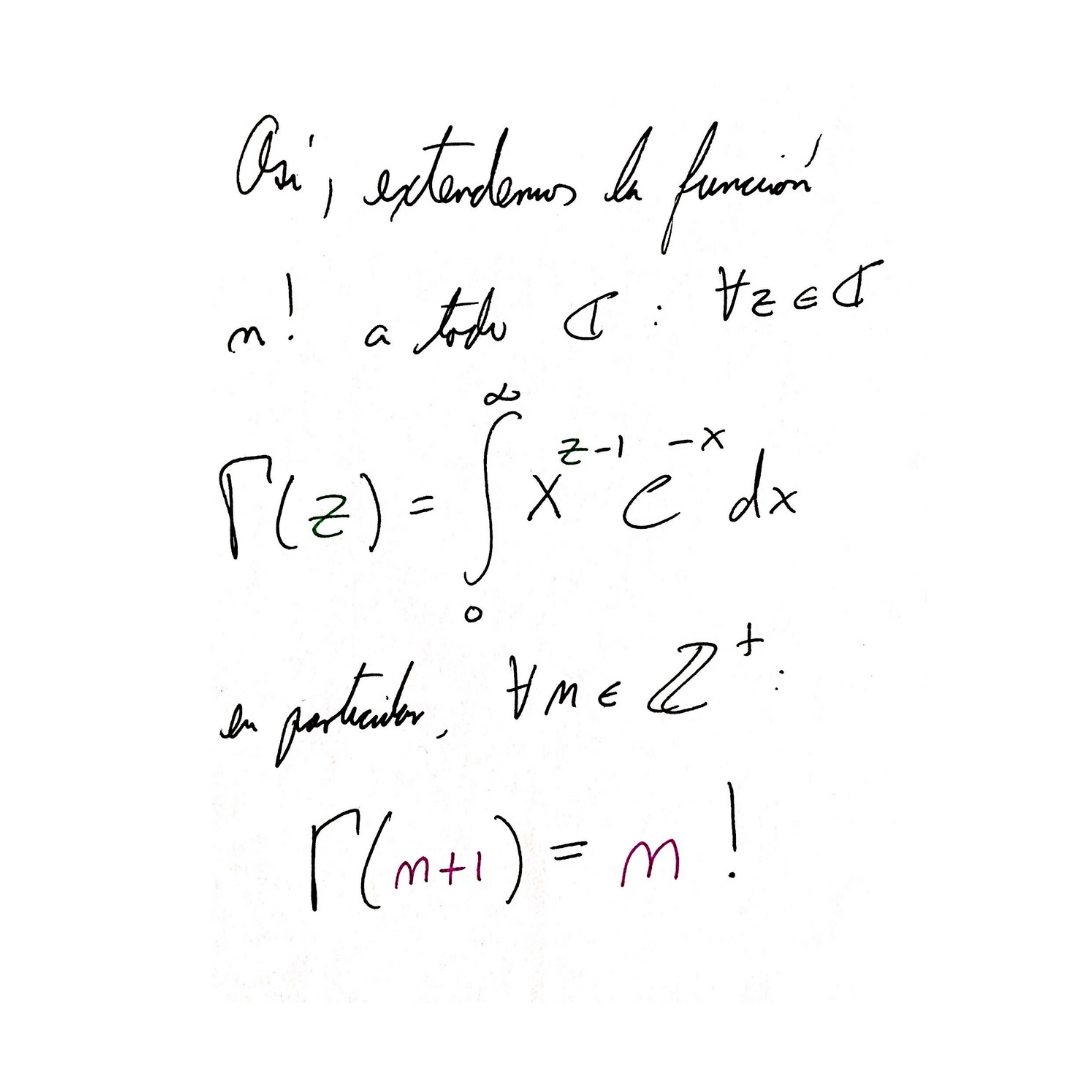 Así, extendemos la función
n! a todo ℂ : ∀z ∈ ℂ
Γ(z) = ∫₀^∞ x^(z-1) e^(-x) dx
en particular, ∀n ∈ ℤ⁺:
Γ(n+1) = n!